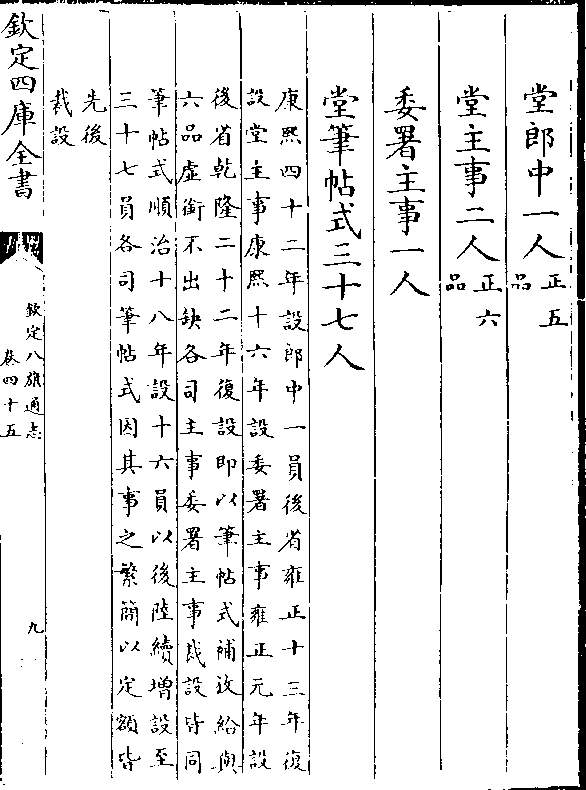 堂郎中一人正五品
堂主事二人正六品
委署主事一人
堂筆帖式三十七人
康熙四十二年設郎中一員後省雍正十三年復
設堂主事康熙十六年設委署主事雍正元年設
後省乾隆二十二年復設即以筆帖式補放給與
六品虛銜不出缺各司主事委署主事戝設皆同
筆帖式順治十八年設十六員以後陸續增設至
三十七員各司筆帖式因其事之繁簡以定額皆
先後
裁設
欽定四庫全書
欽定八旗通志
卷四十五
九